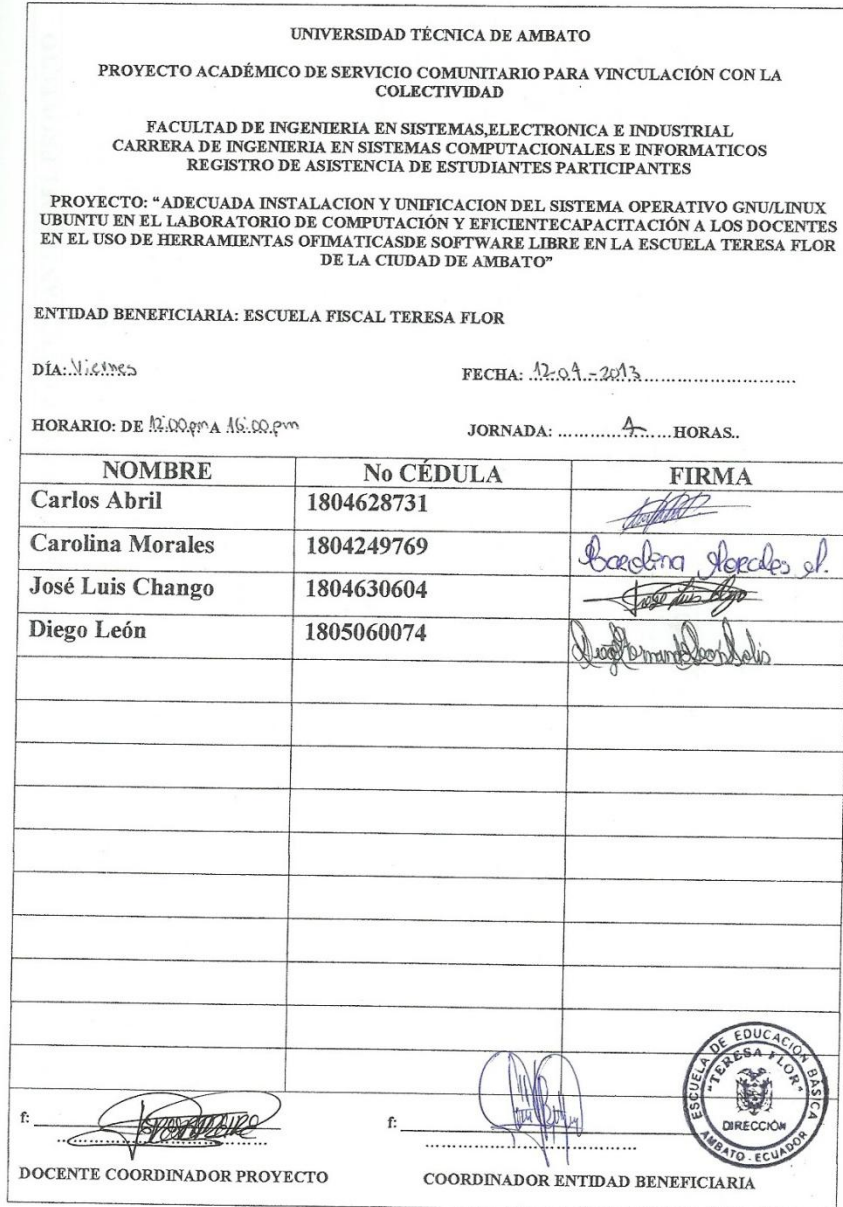 UNIVERSIDAD TÉCNICA DE AMBATO
PROYECTO ACADÉMICO DE SERVICIO COMUNITARIO PARA VINCULACIÓN CON LA
COLECTIVIDAD
FACULTAD DE INGENIERIA EN SISTEMAS,ELECTRONICA E INDUSTRIAL
CARRERA DE INGENIERIA EN SISTEMAS COMPUTACIONALES E INFORMATICOS
REGISTRO DE ASISTENCIA DE ESTUDIANTES PARTICIPANTES
PROYECTO: “ADECUADA INSTALACION Y UNIFICACION DEL SISTEMA OPERATIVO GNU/LINUX
UBUNTU EN EL LABORATORIO DE COMPUTACIÓN Y EFICIENTECAPACITACIÓN A LOS DOCENTES
EN EL USO DE HERRAMIENTAS OFIMATICASDE SOFTWARE LIBRE EN LA ESCUELA TERESA FLOR
DE LA CIUDAD DE AMBATO”
ENTIDAD BENEFICIARIA: ESCUELA FISCAL TERESA FLOR
DÍA: Viernes FECHA: 12-04-2013
HORARIO: DE 12:00 pm A 16:00 pm JORNADA: ............4......HORAS..
NOMBRE No CÉDULA FIRMA
Carlos Abril 1804628731
Carolina Morales 1804249769 Carolina Morales
José Luis Chango 1804630604 Jose Luis
Diego León 1805060074 Diego Fernando Leon Solis
ESCUELA DE EDUCACIÓN BÁSICA
"TERESA FLOR"
DIRECCIÓN
AMBATO - ECUADOR
f: f:
DOCENTE COORDINADOR PROYECTO COORDINADOR ENTIDAD BENEFICIARIA